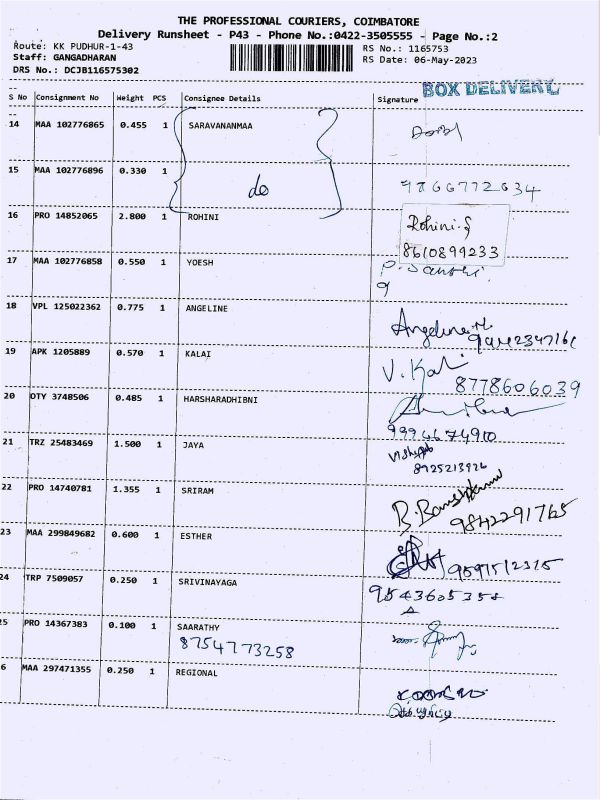 THE PROFESSIONAL COURIERS, COIMBATORE
Delivery Runsheet - P43 - Phone No.:0422-3505555 - Page No.:2
Route: KK PUDHUR-1-43 RS No.: 1165753
Staff: GANGADHARAN RS Date: 06-May-2023
DRS No.: DCJB116575302
BOX DELIVERY
S No Consignment No Weight PCS Consignee Details Signature
14 MAA 102776865 0.455 1 SARAVANANMAA
15 MAA 102776896 0.330 1 do 9866772634
16 PRO 14852065 2.800 1 ROHINI Rohini.S
8610899233
17 MAA 102776858 0.550 1 YOESH
18 VPL 125022362 0.775 1 ANGELINE Angeline.M
9442347161
19 APK 1205889 0.570 1 KALAI V. Kali
8778606039
20 OTY 3748506 0.485 1 HARSHARADHIBNI
9994674910
21 TRZ 25483469 1.500 1 JAYA
8925213926
22 PRO 14740781 1.355 1 SRIRAM
9842291765
23 MAA 299849682 0.600 1 ESTHER 9591512315
24 TRP 7509057 0.250 1 SRIVINAYAGA 9543605354
25 PRO 14367383 0.100 1 SAARATHY
8754773258
6 MAA 297471355 0.250 1 REGIONAL